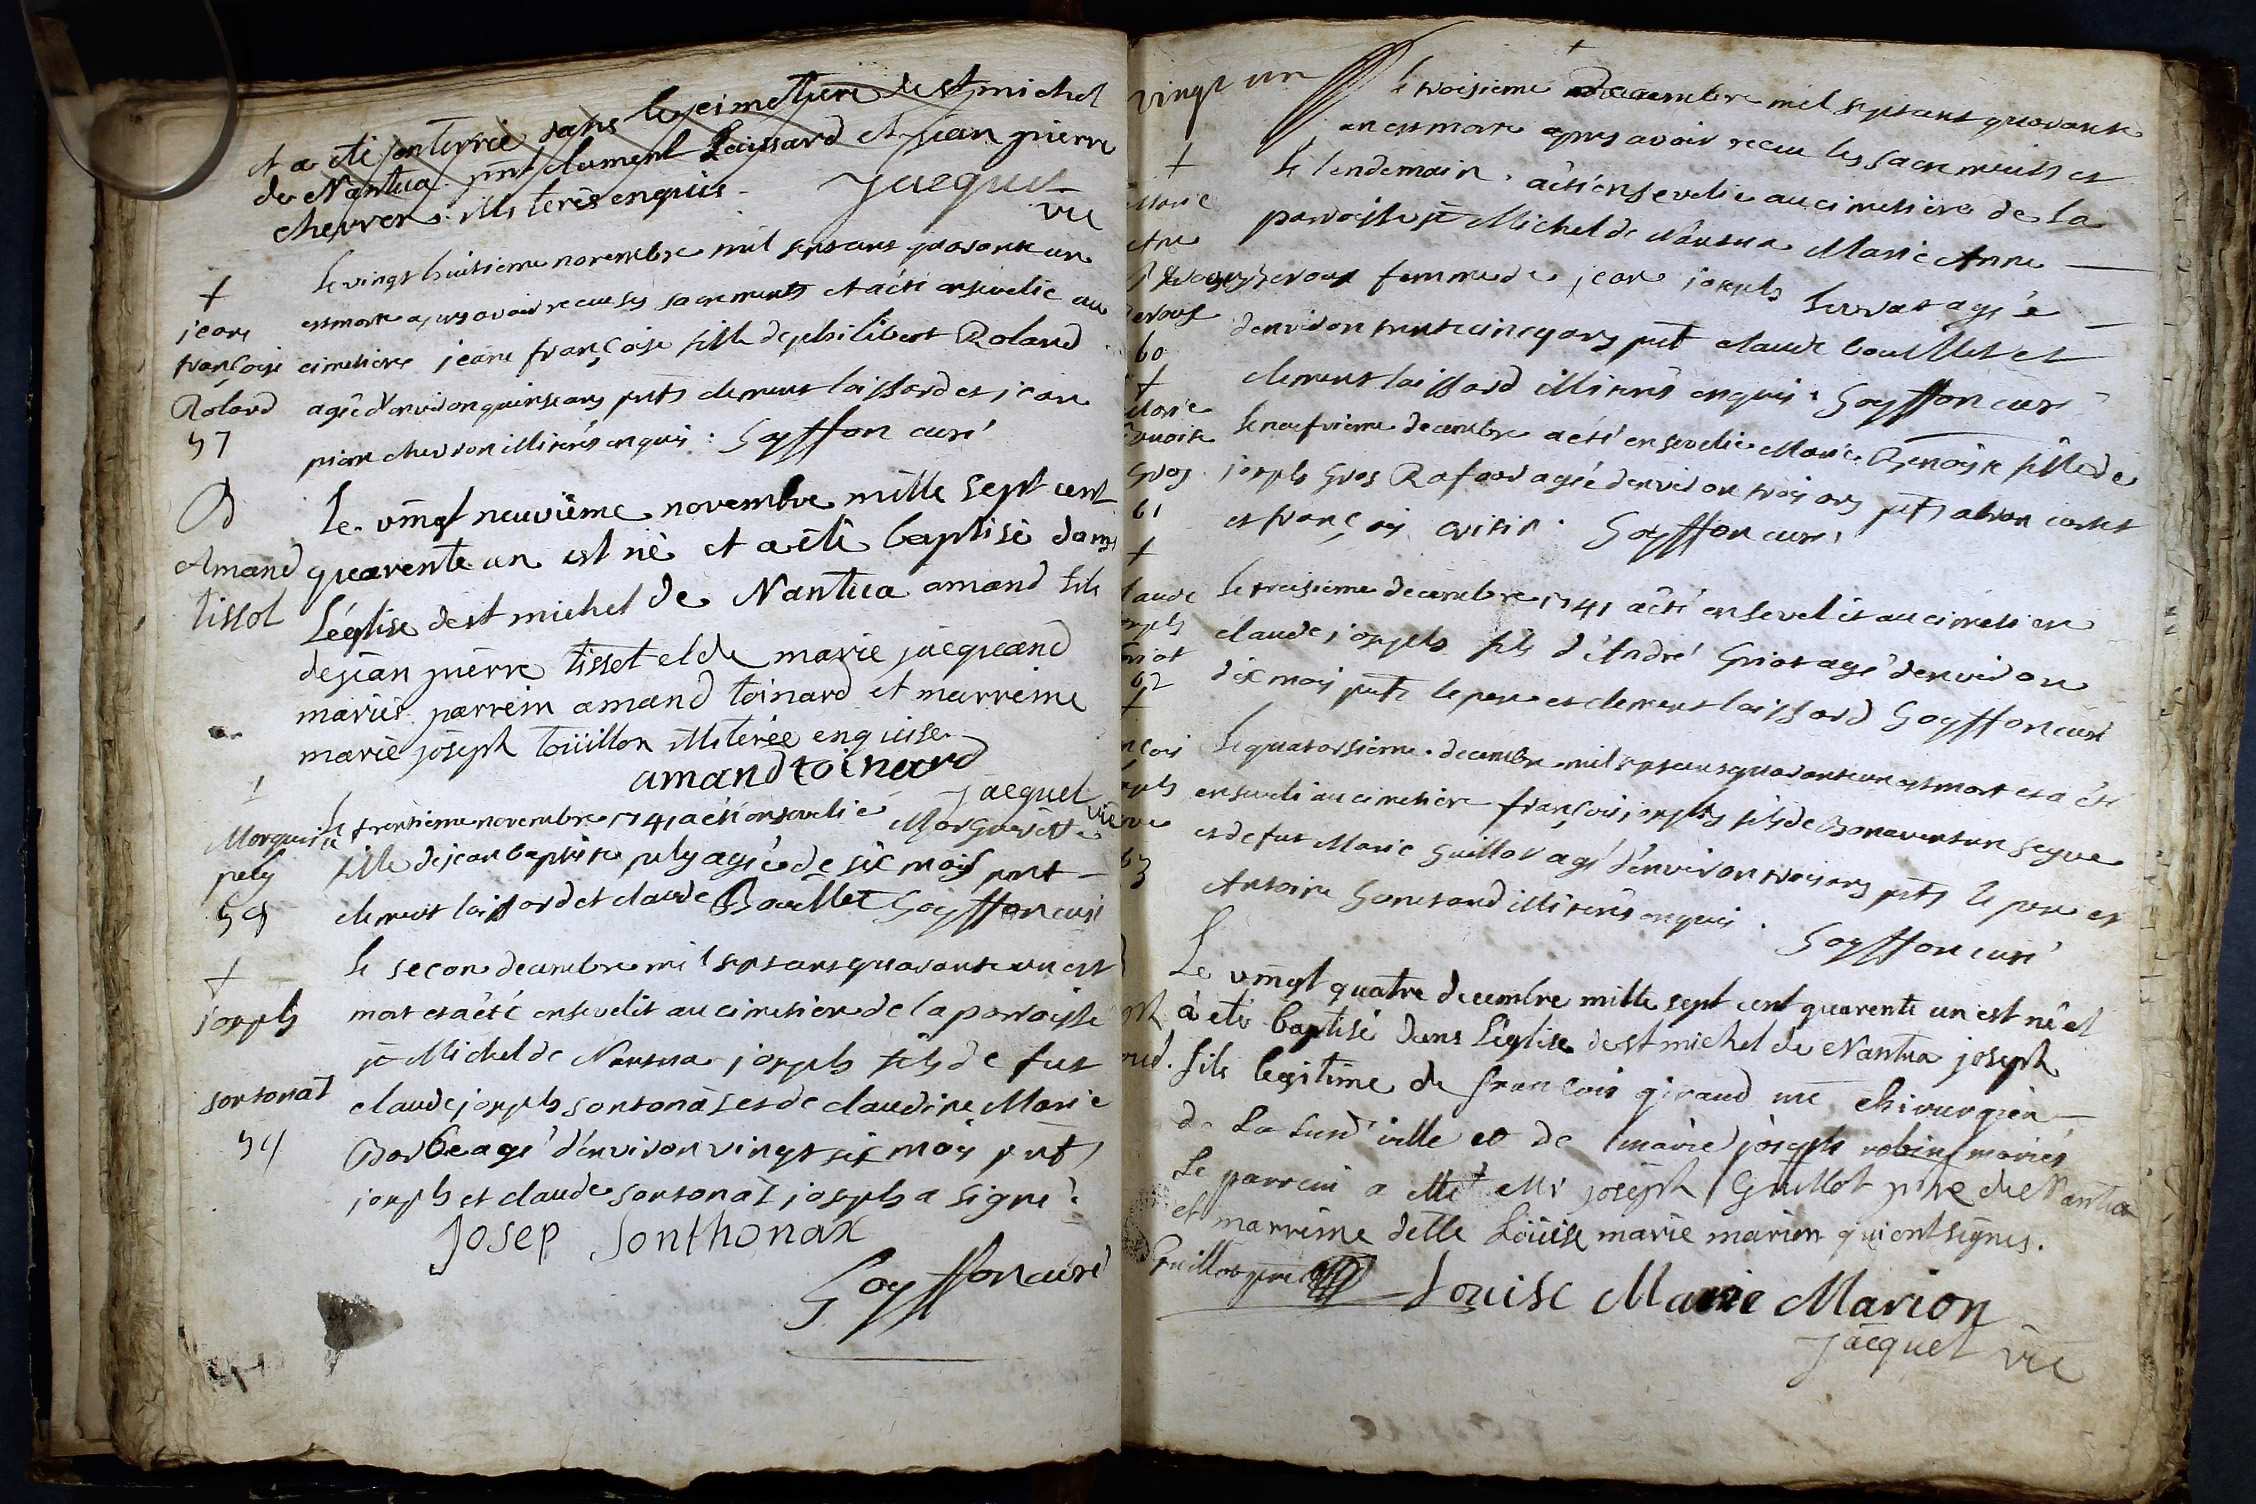 et a ete enterreé dans le cimettiere de st michel
de Nantua pnt clement Laissard et jean pierre
chevron illiterés enquis
jacquet
vic
+
jeane
françoise
Roland
57
Le vingt huitieme novembre mil septcent quarante un
est morte apres avoir receu ses sacrements et a èté ensevelie au
cimetiere jeane françoise fille de philibert Roland
agée d'environ quinse ans pnts clement laissard et jean
piere chevron illiterés enquis : Goyffon curé
B
Amand
tissot
Le vingt neuviéme novembre mille sept cent
quarente un est né et a été baptisé dans
L'église de st michel de Nantua amand fils
de jean pierre tissot et de marie jacquand
mariés. parrein amand toinard et marreine
marie joseph toüillon illiterée enquise
amand toinard
jacquet vic
+
Marguerite
pely
58
Le trentieme novembre 1741 a èté ensevelie Margueritte
fille de jean baptiste pely agée de six mois pnt
clement laissard et claude Bouillet Goyffon curé
+
joseph
sontonat
59
Le second decembre mil septcent quarante un est
mort et a èté ensevelit au cimetiere de la paroisse
st Michel de Nantua joseph fils de fut
claude joseph sontonat et de claudine Marie
Barbe agé d'environ vingt six mois pnts
joseph et claude sontonat joseph a signé :
Josep Sonthonax
Goyffon curé
vingt un
+
Marie
Ane
60
Le troisieme decembre mil septcent quarante
un est morte apres avoir receu les sacrements et
le lendemain a èté ensevelie au cimetiere de la
paroisse st Michel de Nantua Marie Anne
femme de jean joseph agée
d'environ trente cinq ans pnt claude bouillet et
clement laissard illiterés enquis : Goyffon curé
+
Marie
benoite
Gros
61
Le neufvieme decembre a èté ensevelie Marie Benoite fille de
joseph Gros Rafour agée d'environ trois ans pnts
et françois Goyffon curé
+
claude
joseph
Griot
62
Le treisieme decembre 1741 a èté ensevelit au cimetiere
claude joseph fils d'André Griot agé d'environ
dix mois pnts le pere et clement laissard Goyffon curé
+
63
Le quatorsieme decembre mil septcent quarante un est mort et a èté
enseveli au cimetiere françois joseph fils de Bonaventure Segue
et de fut Marie Guillot agé d'environ trois ans pnts le pere et
Antoine Gonetand illiterés enquis .
Goyffon curé
Le vingt quatre decembre mille sept cent quarente un est né et
à eté baptisé dans L'église de st michel de Nantua joseph
fils legitime de françois giraud me chirurgien
de La sud ville et de marie joseph robin mariés
Le parrein a eté Mr joseph Guillot pere de Nantua
et marreine delle Loüise marie marion qui ont signés.
Guillot pere Louise Marie Marion
jacquet vic